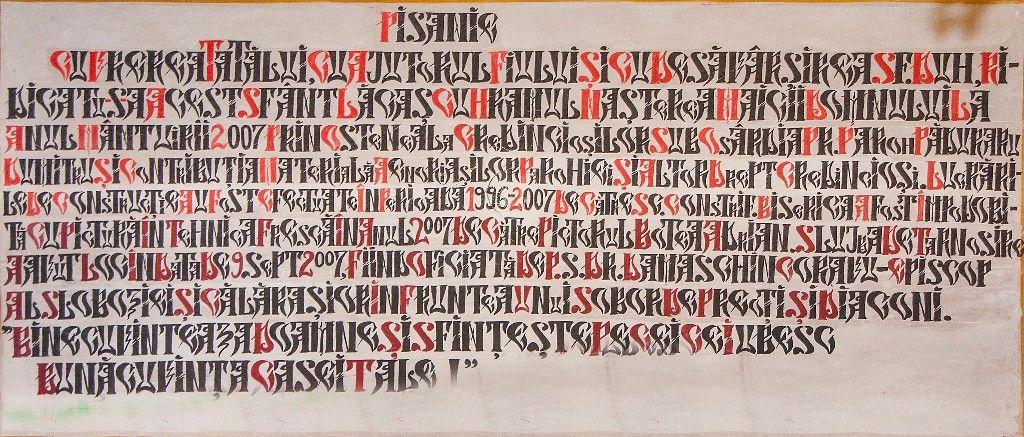 PISANIE
CU VREREA TATĂLUI CU AJUTORUL FIULUI ȘI CU DESĂVÂRȘIREA SF. DUH, RI-
DICATU-S-A ACEST SFÂNT LĂCAȘ CU HRAMUL NAȘTEREA MAICII DOMNULUI LA
ANUL MÂNTUIRII 2007 PRIN OSTENEALA CREDINCIOȘILOR SUB OSÂRDIA PR. PAROH PĂDURARU
DUMITRU ȘI CONTRIBUȚIA MATERIALĂ A ENORIAȘILOR PAROHIEI ȘI ALTOR DREPTCREDINCIOȘI. LUCRĂRI-
LE DE CONSTRUCȚIE AU FOST EFECTUATE ÎN PERIOADA 1996-2007 DE CĂTRE SC CONSTRIF. BISERICA A FOST ÎMPODOBI-
TĂ CU PICTURĂ ÎN TEHNICA FRESCĂ ÎN ANUL 2007 DE CĂTRE PICTORUL BOTEA ADRIAN. SLUJBA DE TÂRNOSIRE
A AVUT LOC ÎN DATA DE 9 SEPT 2007, FIIND OFICIATĂ DE P.S. DR. DAMASCHIN CORAVU - EPISCOP
AL SLOBOZIEI ȘI CĂLĂRAȘILOR ÎN FRUNTEA UNUI SOBOR DE PREOȚI ȘI DIACONI.
"BINECUVINTEAZĂ DOAMNE ȘI SFINȚEȘTE PE CEI CE IUBESC
BUNĂCUVIINȚA CASEI TALE !"